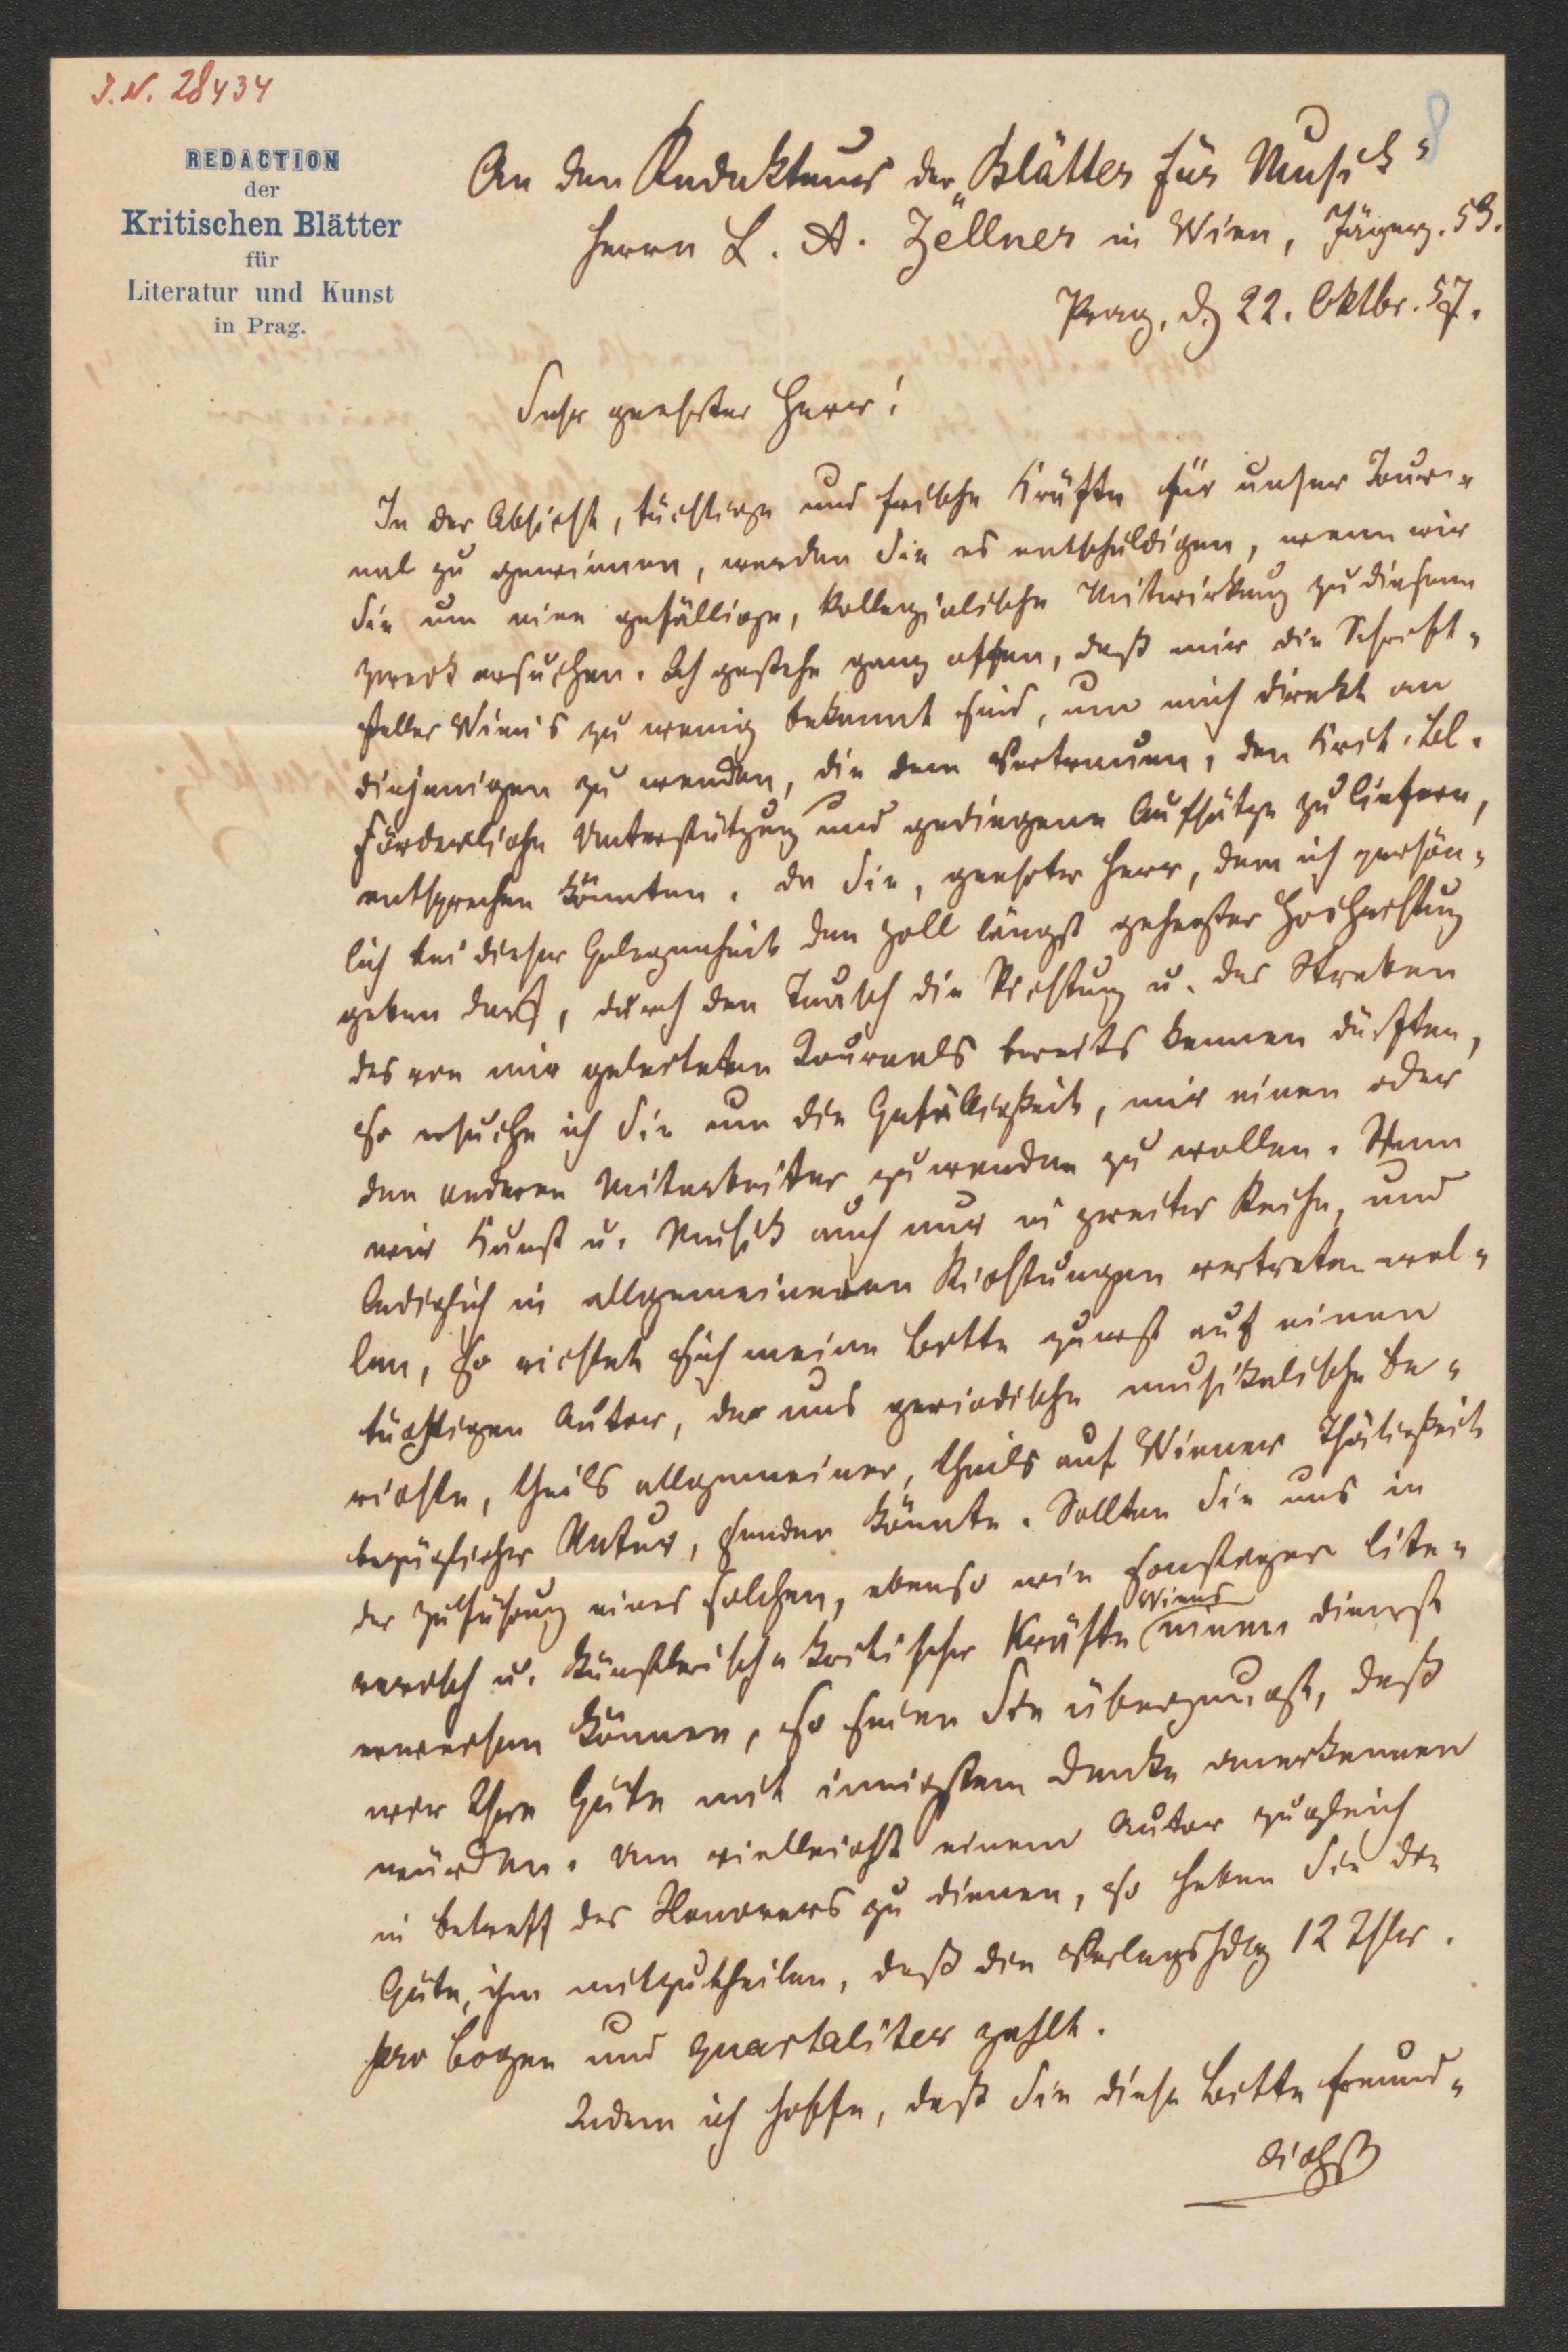 I. N. 28434
8
REDACTION
der
Kritischen Blätter
für
Literatur und Kunst
in Prag.
An den Redakteur der „Blätter für Musik“
Herrn L. A. Zellner in Wien, Jägerz. 59.
Prag, d. 22. Oktbr. 57.
Sehr geehrter Herr!
In der Absicht, tüchtige und frische Kräfte für unser Jour-
nal zu gewinnen, werden Sie es entschuldigen, wenn wir
Sie um eine gefällige, kollegialische Mitwirkung zu diesem
Zweck ersuchen. Ich gestehe ganz offen, daß mir die Schrift-
steller Wien's zu wenig bekannt sind, um mich direkt an
diejenigen zu wenden, die dem Vertrauen, den Krit. Bl.
förderliche Unterstützung und gediegene Aufsätze zu liefern,
entsprechen könnten. Da Sie, geehrter Herr, dem ich persön-
lich bei dieser Gelegenheit den Zoll längst gehegter Hochachtung
geben darf, durch den Tausch die Richtung u. das Streben
des von mir geleiteten Journals bereits kennen dürften,
so ersuche ich Sie um die Gefälligkeit, mir einen oder
den anderen Mitarbeiter zuwenden zu wollen. Wenn
wir Kunst u. Musik auch nur in zweiter Reihe, und
lediglich in allgemeineren Richtungen vertreten wol-
len, so richtet sich meine Bitte zuerst auf einen
tüchtigen Autor, der uns periodische musikalische Be-
richte, theils allgemeiner, theils auf Wiener Thätigkeit
bezüglicher Natur, senden könnte. Sollten Sie uns in
der Zuführung eines solchen, ebenso wie sonstiger lite-
rarisch u. künstlerisch-kritischer Kräfte Wiens einen Dienst
erweisen können, so seien Sie überzeugt, daß
wir Ihre Güte mit innigstem Danke anerkennen
würden. Um vielleicht einem Autor zugleich
in Betreff des Honorars zu dienen, so haben Sie die
Güte, ihm mitzutheilen, daß die Verlagshdlg 12 Thlr.
pro Bogen und quartaliter zahlt.
Indem ich hoffe, daß Sie diese Bitte freund-
lichst